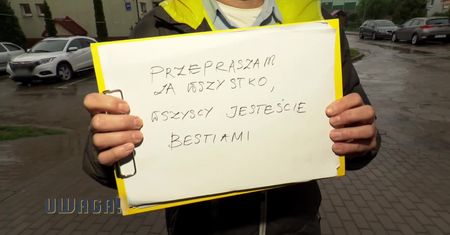 PRZEPRASZAM
ZA WSZYSTKO,
WSZYSCY JESTEŚCIE
BESTIAMI
UWAGA!